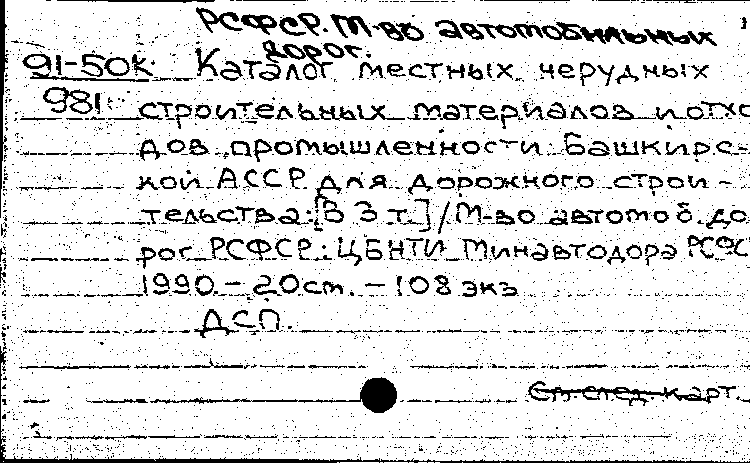 РСФСР. М-во автомобильных
дорог.
91-50к Каталог местных нерудных
981 строительных материалов и отхо
дов промышленности Башкирс-
кой АССР для дорожного строи-
тельства: [В 3 т.] / М-во автомоб. до
рог РСФСР: ЦБНТИ Минавтодора РСФС
1990. - 20 см. - 108 экз
ДСП.
См. след. карт.